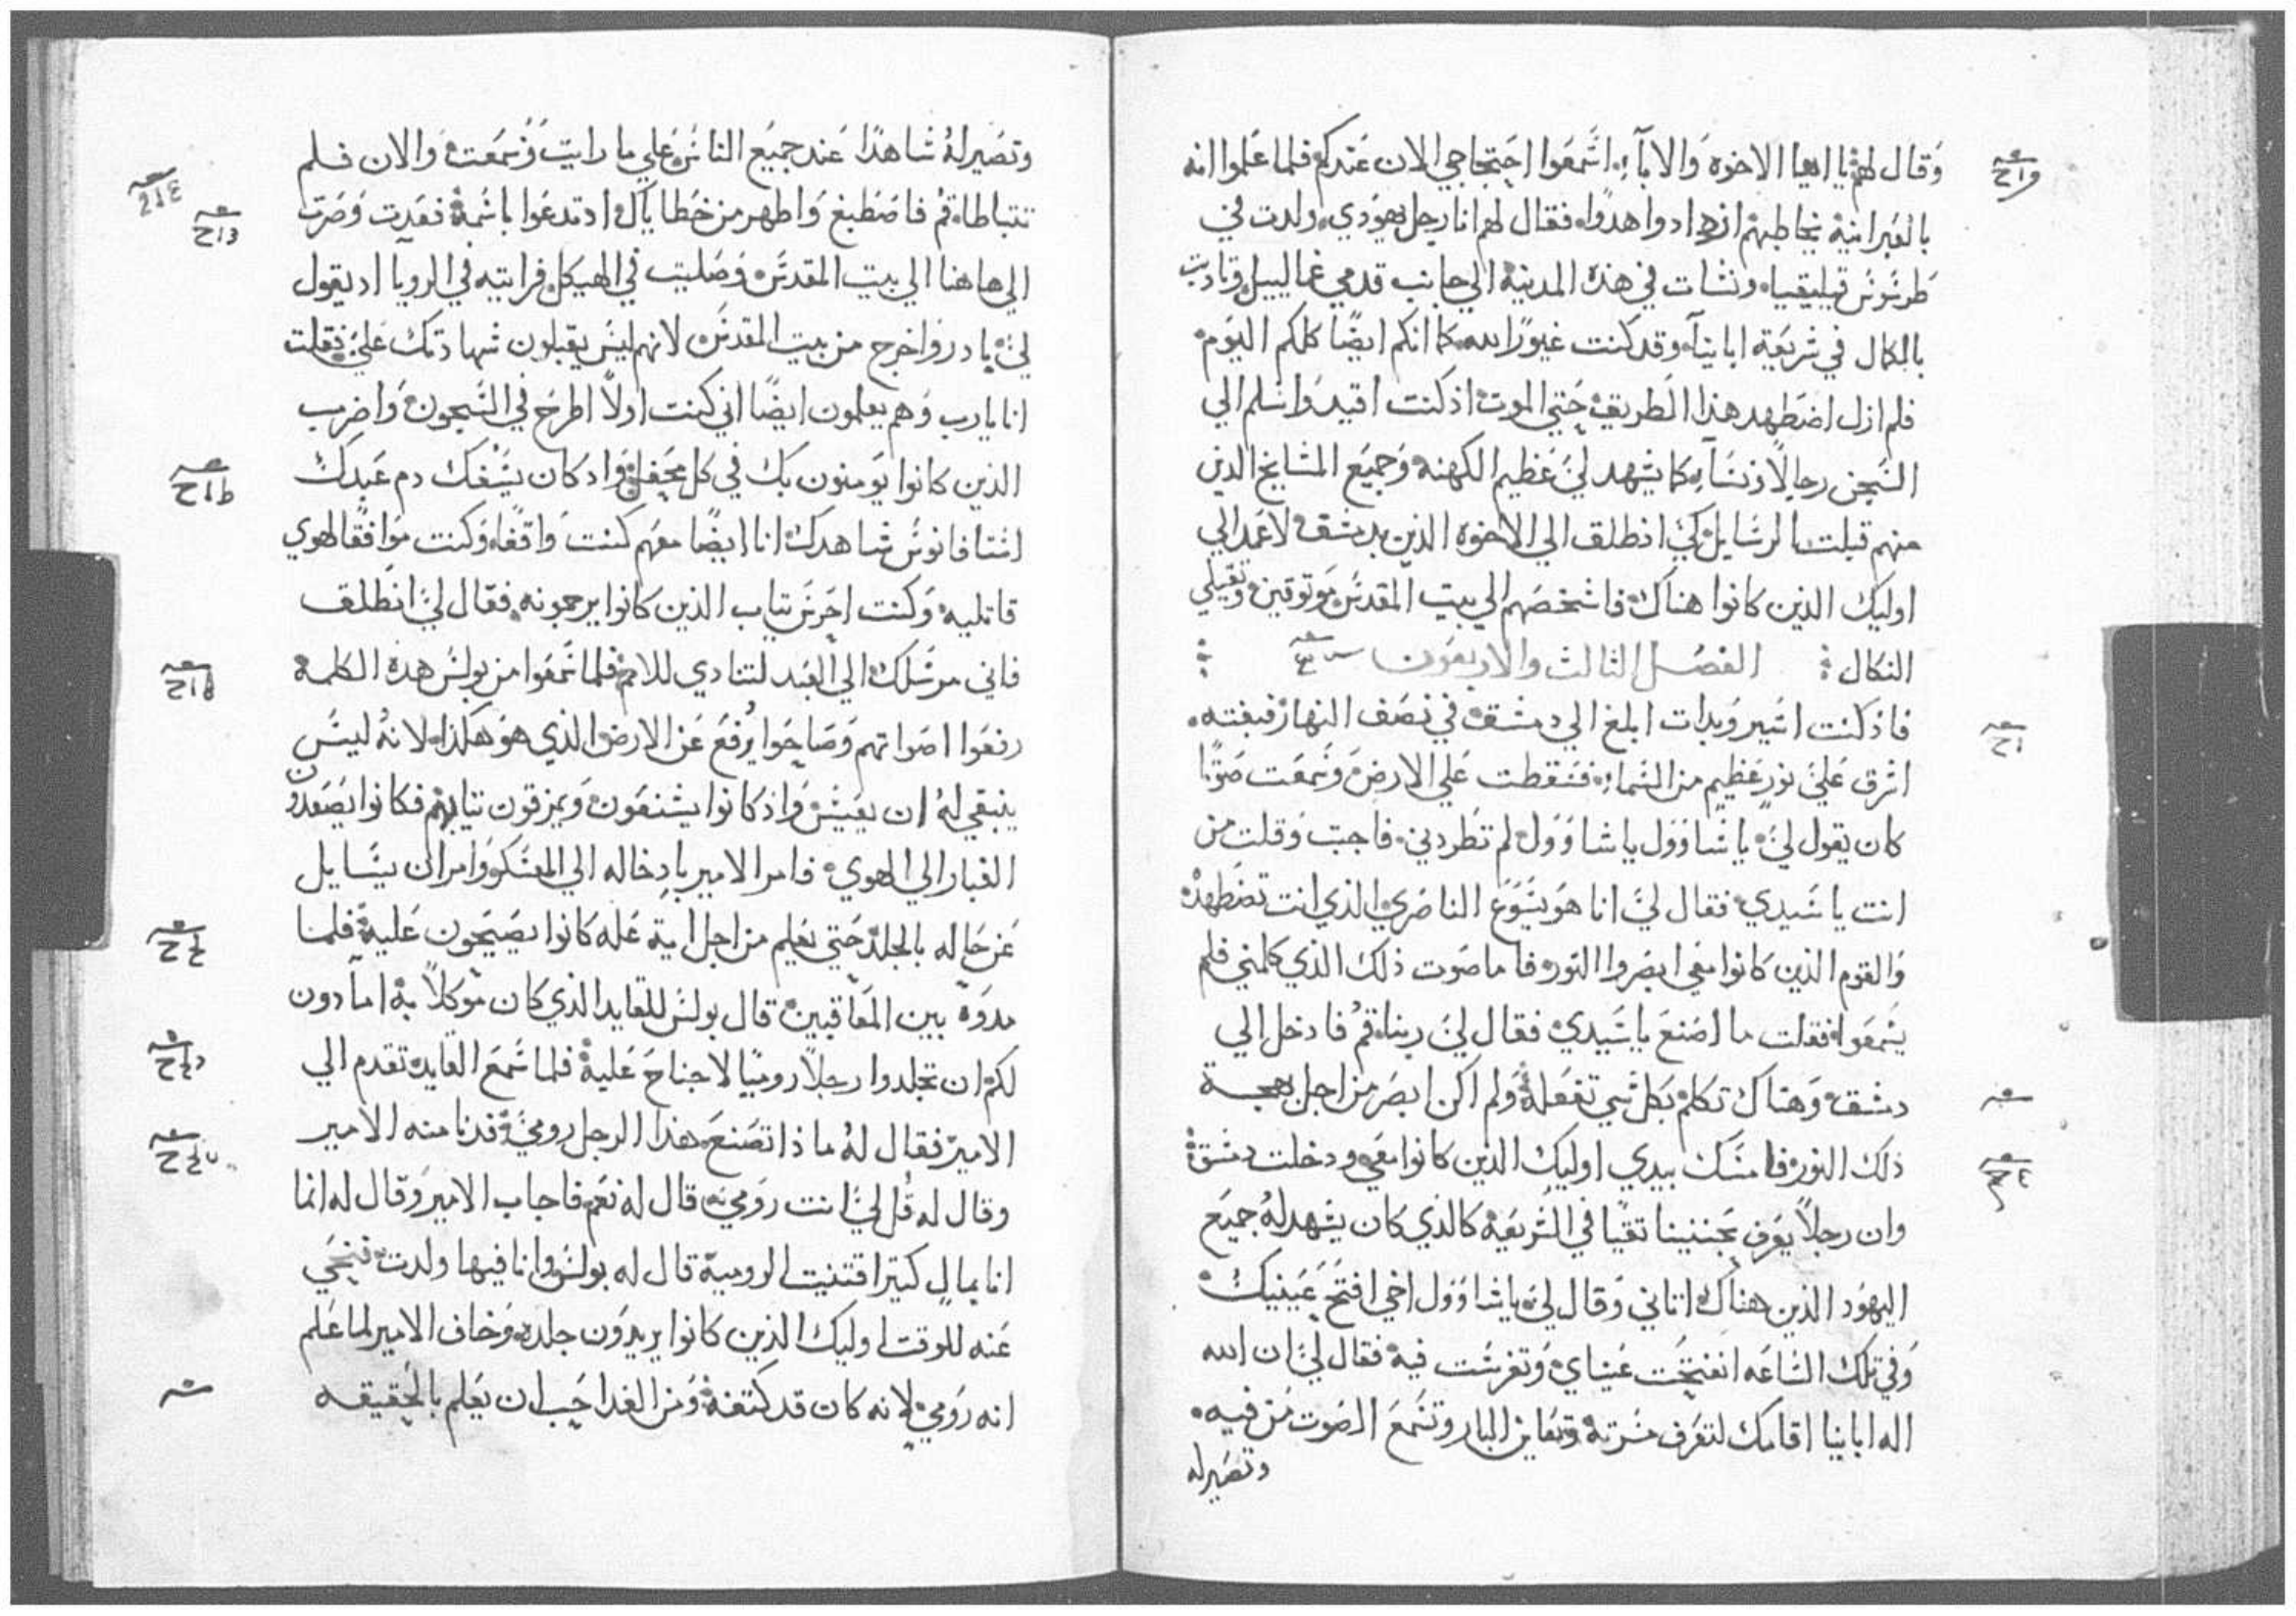 وقال لهم يا ايها الاخوه والاباء اسمعوا احتجاجي الان عندكم فلما علموا انه
بالعبرانية يخاطبهم ازدادوا هدوا فقال لهم انا رجل يهودي ولدت في
طرسوس قيليقيا ونشات في هذه المدينة الي جانب قدمي غمالييل وتادبت
بالكمال في شريعة ابائنا وقد كنت غيورا لله كما انكم ايضا كلكم اليوم
فلم ازل اضطهد هذا الطريق حتي الموت اذ كنت اقيد واسلم الي
السجن رجالا ونساء كما يشهد لي عظيم الكهنه وجميع المشايخ الذين
منهم قبلت الرسايل كي انطلق الي الاخوه الذين بدمشق لاعمد الي
اوليك الذين كانوا هناك فاشخصهم الي بيت المقدس موثوقين وتقبلي
النكال الفصل الثالث والاربعون
فاذ كنت اسير وبدات ابلغ الي دمشق في نصف النهار فبغته
اشرق علي نور عظيم من السماء فسقطت علي الارض وسمعت صوتا
كان يقول لي يا شاوول يا شاوول لم تطردني فاجبت وقلت من
انت يا سيدي فقال لي انا هو يسوع الناصري الذي انت تضطهده
والقوم الذين كانوا معي ابصروا النور فاما صوت ذلك الذي كلمني فلم
يسمعوا فقلت ما اصنع يا سيدي فقال لي ربنا قم فادخل الي
دمشق وهناك تكلم بكل شي تفعله ولم اكن ابصر من اجل بهجة
ذلك النور فامسك بيدي اوليك الذين كانوا معي ودخلت دمشق
وان رجلا يعرف بحننينا تقيا في الشريعة كالذي كان يشهد له جميع
اليهود الذين هناك اتاني وقال لي يا شاوول اخي افتح عينيك
وفي تلك الساعه انفتحت عيناي وتفرست فيه فقال لي ان الله
اله اباينا اقامك لتعرف مسرته وتعاين البار وتسمع الصوت من فيه
وتصير له
وتصير له شاهدا عند جميع الناس علي ما رايت وسمعت والان فلم
تتباطا قم فاصطبغ واطهر من خطاياك اذ تدعوا باسمه فعدت وصرت
الي هاهنا الي بيت المقدس وصليت في الهيكل فرايته في الرويا اذ يقول
لي بادر واخرج من بيت المقدس لانهم ليس يقبلون شهادتك علي فقلت
انا يا رب وهم يعلمون ايضا اني كنت اولا اطرح في السجون واضرب
الذين كانوا يومنون بك في كل محفل واذ كان يسفك دم عبدك
استافانوس شاهدك انا ايضا معهم كنت واقفا وكنت موافقا لهوي
قاتليه وكنت احرس ثياب الذين كانوا يرجمونه فقال لي انطلق
فاني مرسلك الي البعد لتنادي للامم فلما سمعوا من بولس هذه الكلمة
رفعوا اصواتهم وصاحوا يرفع عن الارض الذي هو هكذا لانه ليس
ينبغي له ان يعيش واذ كانوا يشنعون ويمزقون ثيابهم فكانوا يصعدون
الغبار الي الهوي فامر الامير بادخاله الي المعسكر وامر ان يسايل
عن حاله بالجلد حتي يعلم من اجل اية علة كانوا يصيحون عليه فلما
مدوه بين المعاقبين قال بولس للقايد الذي كان موكلا به اماذون
لكم ان تجلدوا رجلا روميا لا جناح عليه فلما سمع القايد تقدم الي
الامير فقال له ماذا تصنع هذا الرجل رومي فدنا منه الامير
وقال له قل لي انت رومي قال له نعم فاجاب الامير وقال له انما
انا بمال كثير اقتنيت الرومية قال له بولس وانا فيها ولدت فتنحي
عنه للوقت اوليك الذين كانوا يريدون جلده وخاف الامير لما علم
انه رومي لانه كان قد كتفه ومن الغد احب ان يعلم بالحقيقه